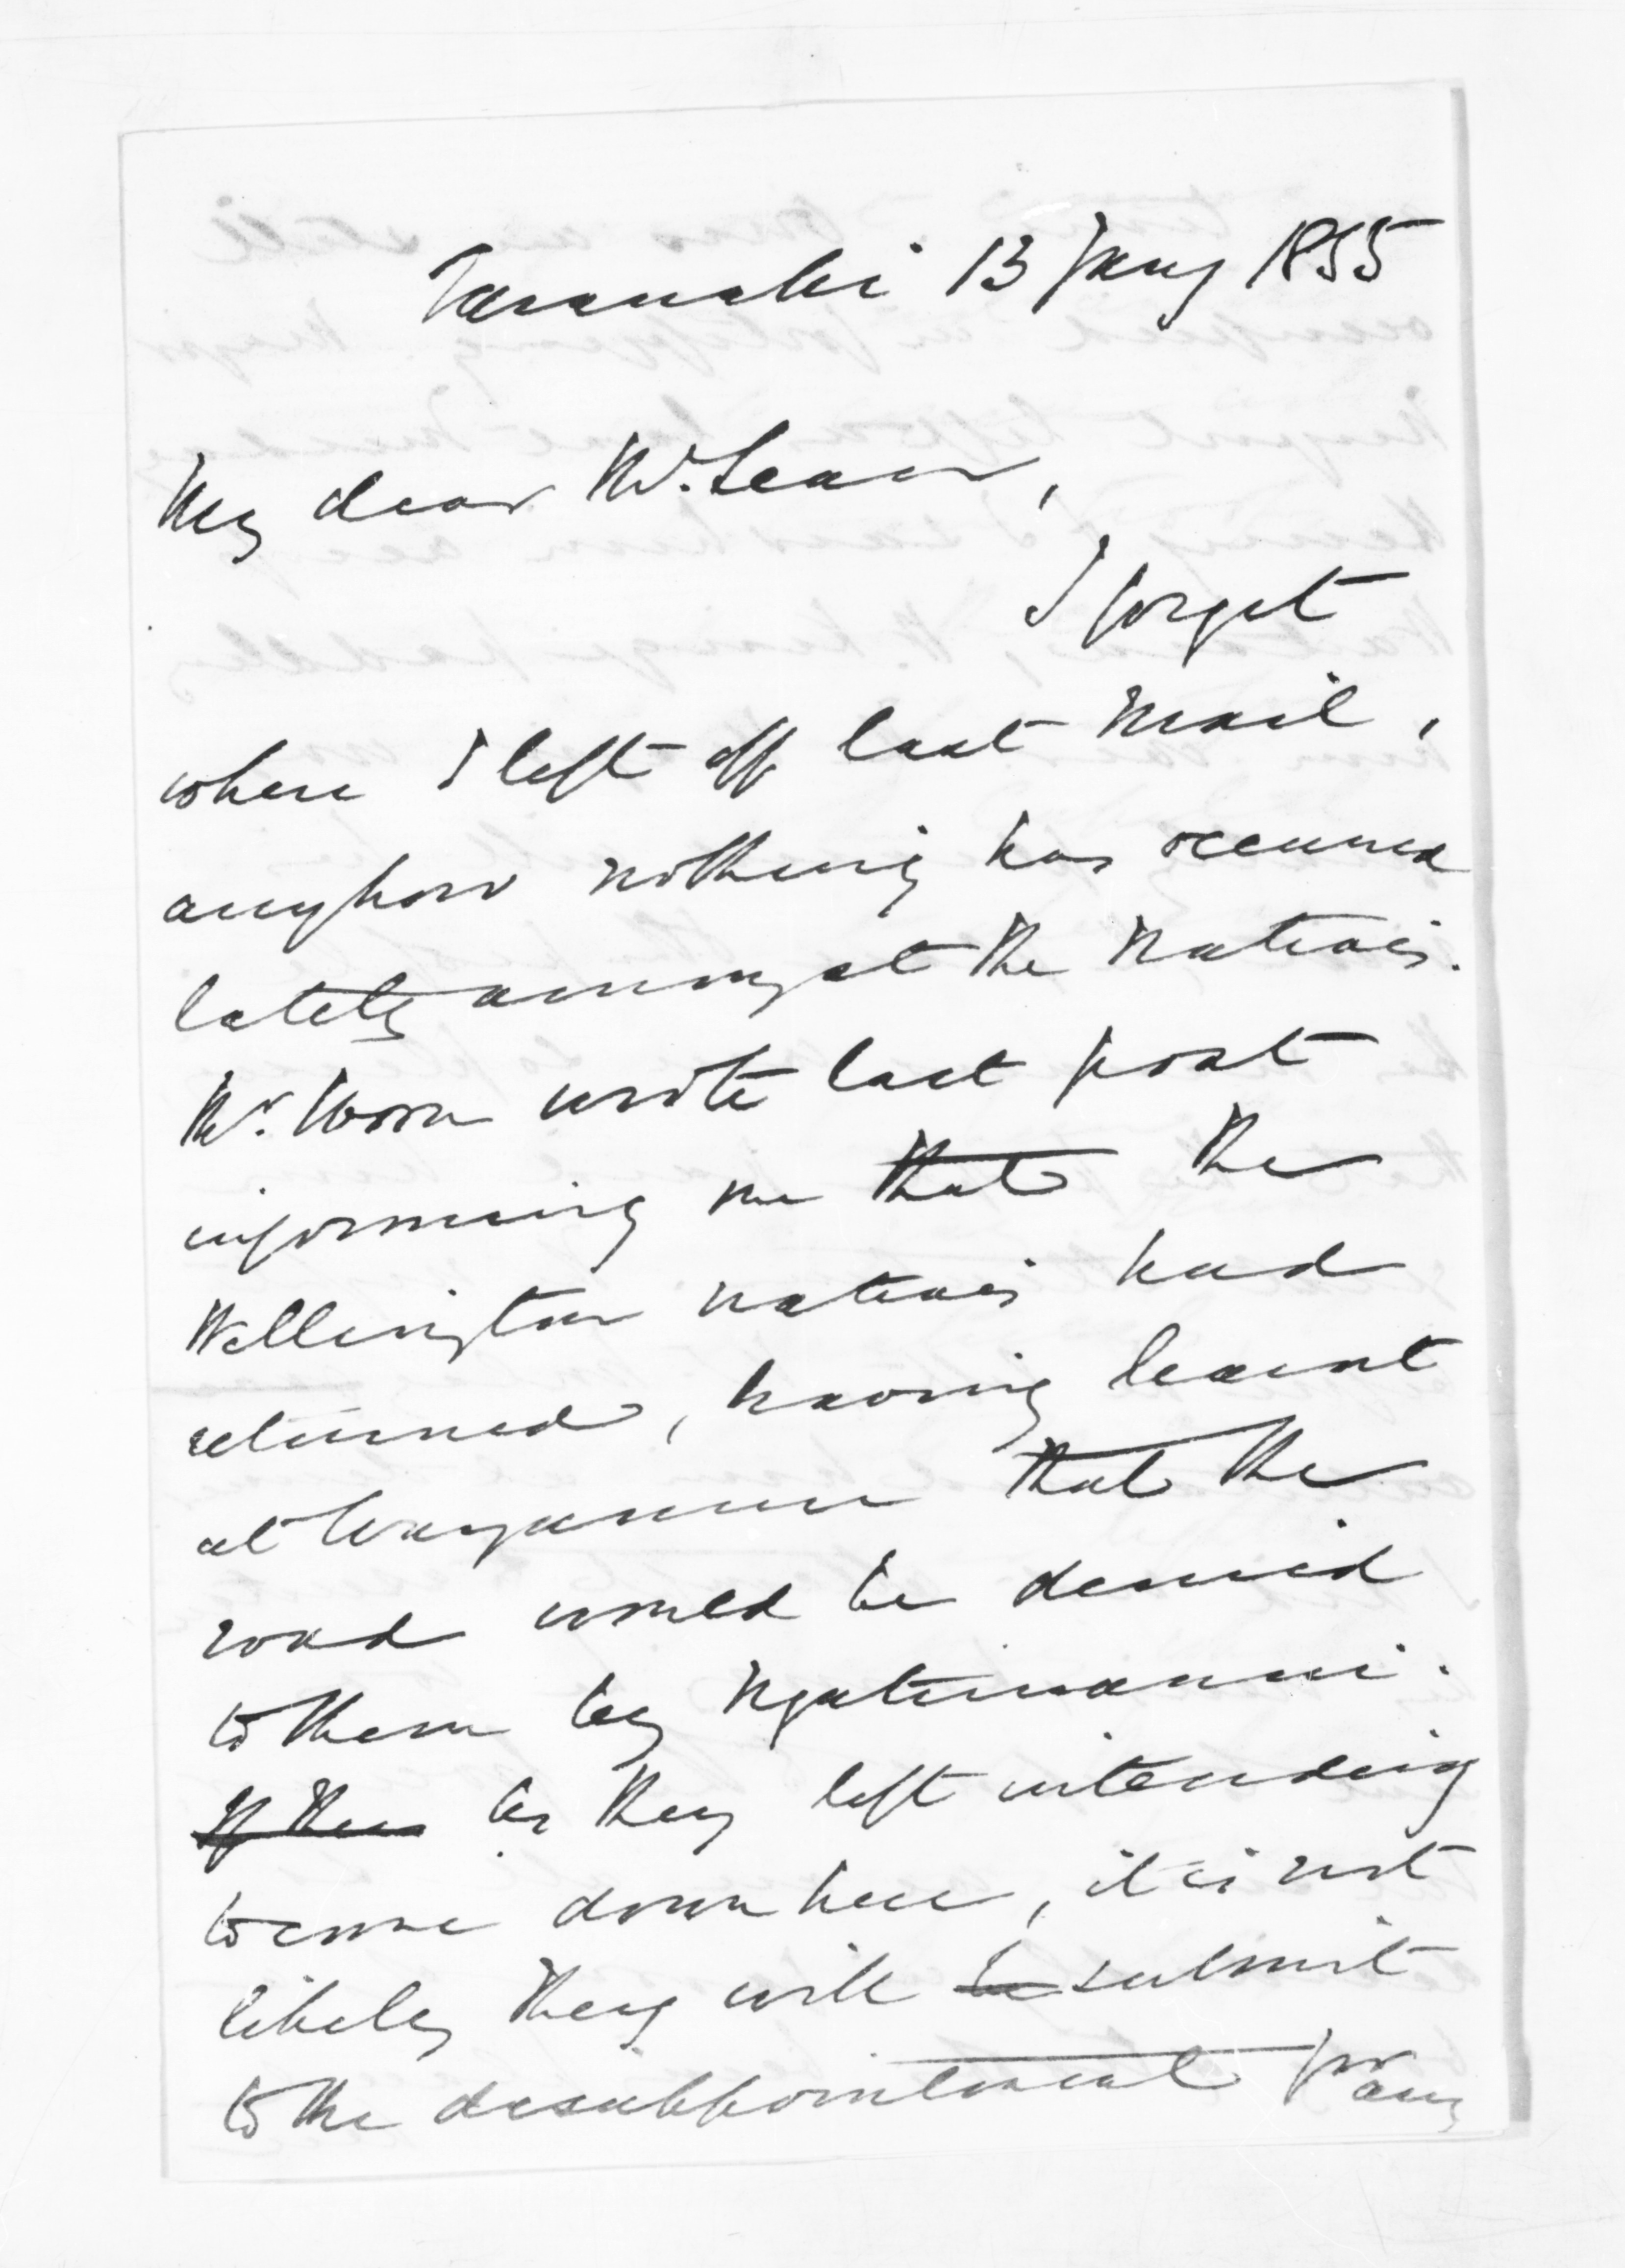 Taranaki 13 Jany 1855
My dear McLean,
I forget
where I left off last mail,
anyhow nothing has occurred
lately amongst the Natives.
Mr. Woon wrote last post
informing me that the
Wellington natives had
returned, having learnt
at Wanganui that the
road would be denied
to them by Ngatiruanui.
If they As they left intending
to come down here, it is not
likely they will be submit
to the disappointment for any